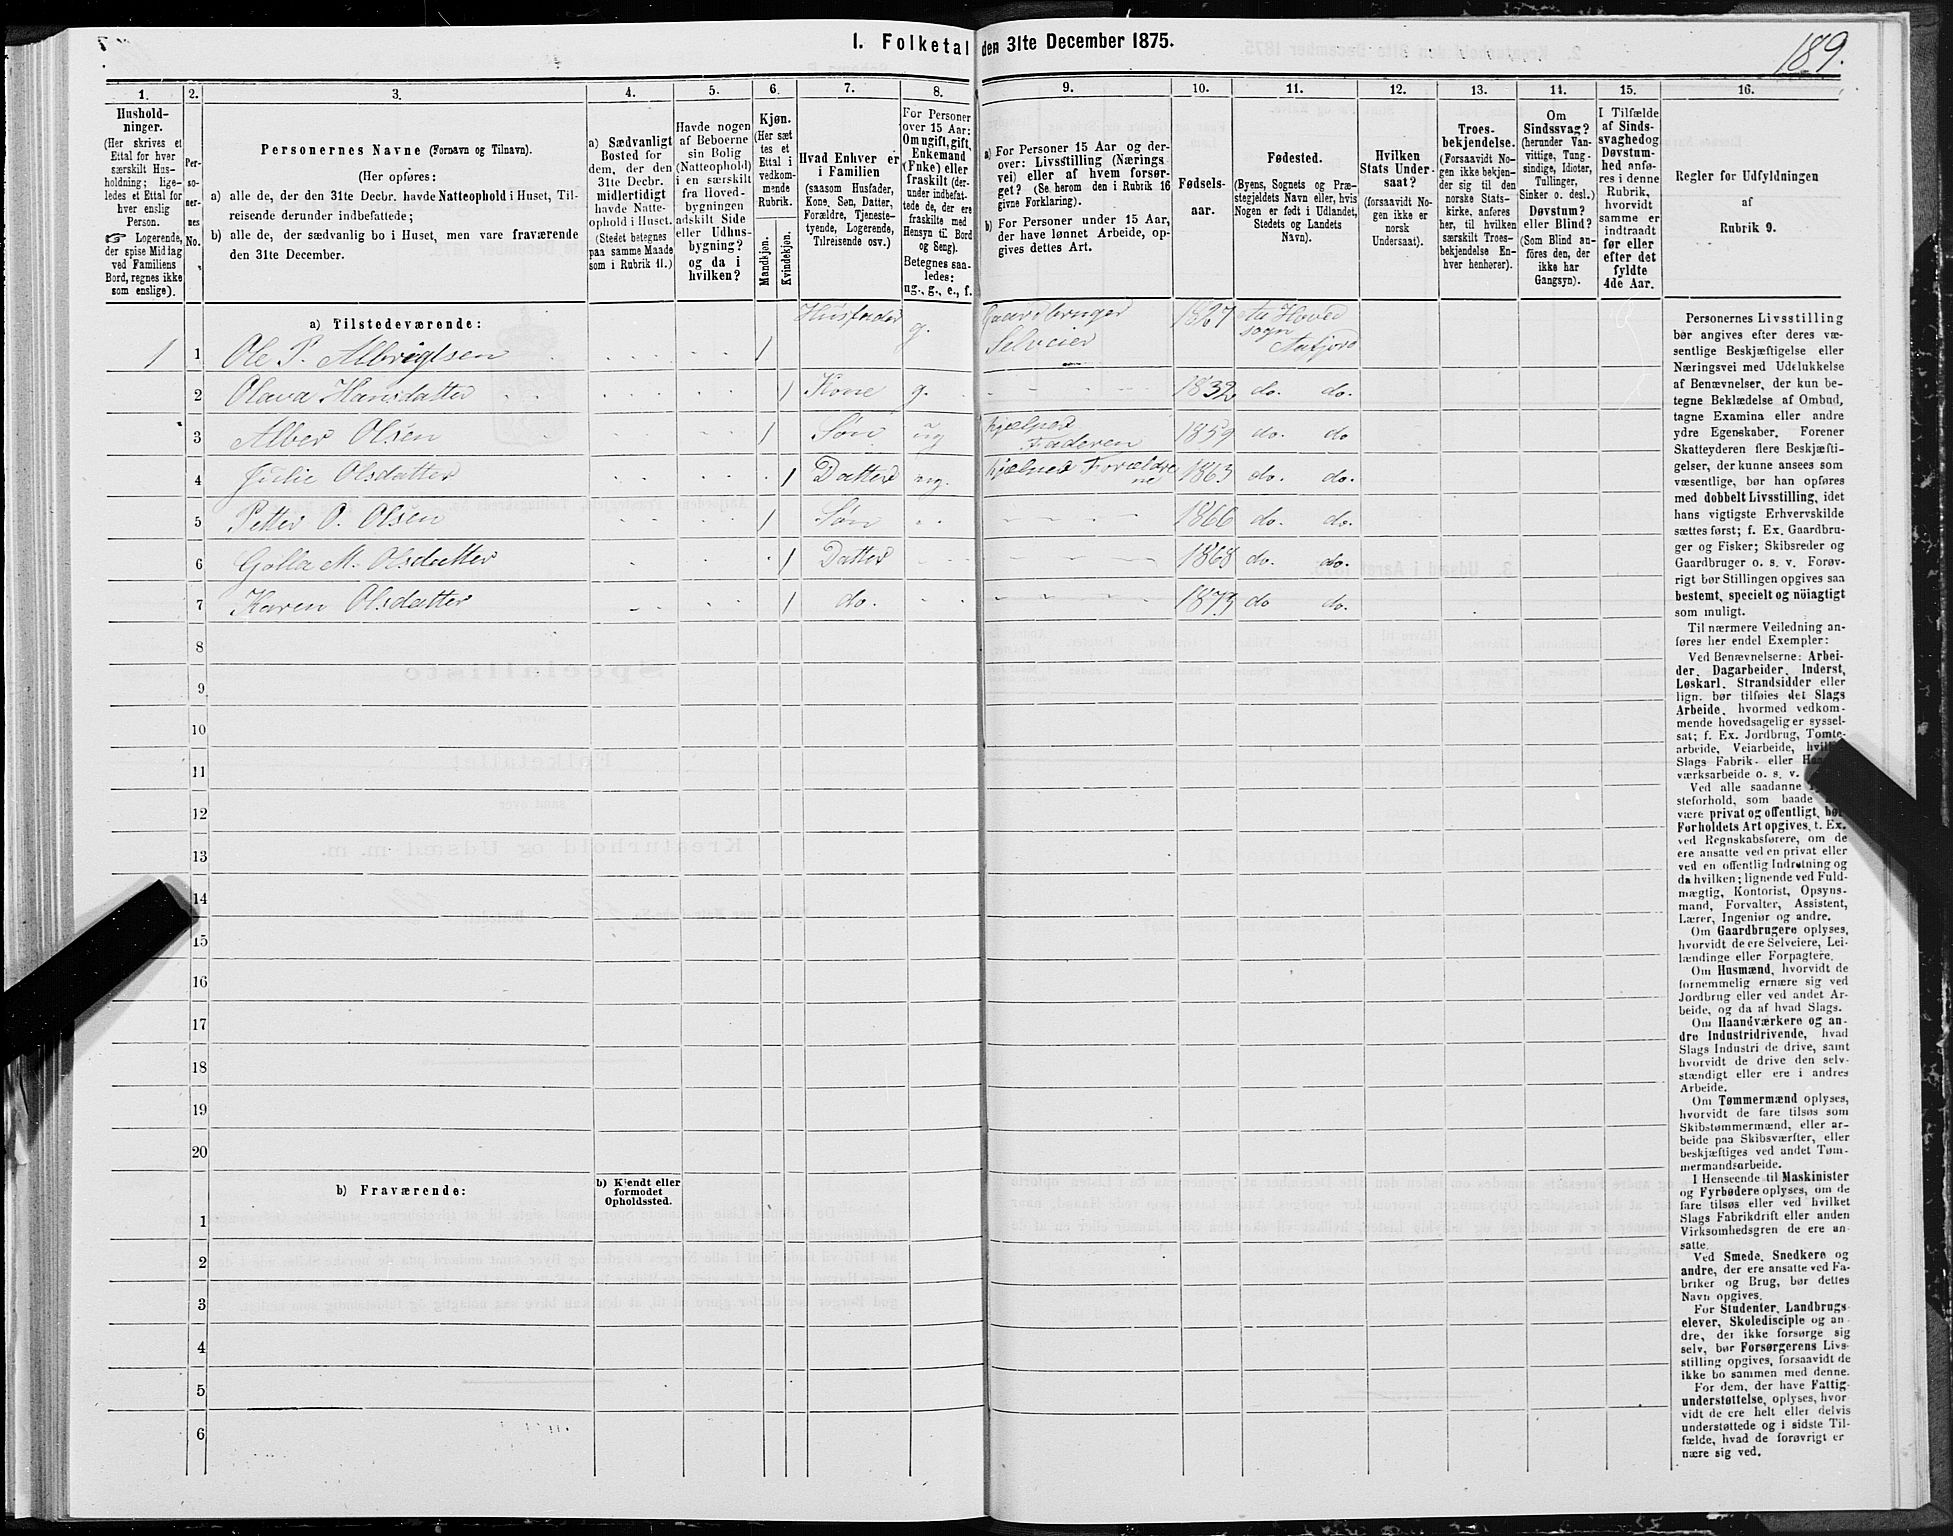 I. Folketal den 31te December 1875.
189.
1. 2. 3. 4. 5. 6. 7. 8. 9. 10. 11. 12. 13. 14. 15. 16.
Hushold-
ninger.
(Her skrives et
Ettal for hver
særskilt Hus-
holdning; lige-
ledes et Ettal for
hver enslig
Person.
☞ Logerende,
der spise Middag
ved Familiens
Bord, regnes ikke
som enslige).
Per-
so-
ner-
nes
No.
Personernes Navne (Fornavn og Tilnavn).
(Her opføres:
a) alle de, der den 31te Decbr. havde Natteophold i Huset, Til-
reisende derunder indbefattede;
b) alle de, der sædvanlig bo i Huset, men vare fraværende
den 31te December.
a) Sædvanligt
Bosted for
dem, der den
31te Decbr.
midlertidigt
havde Natte-
ophold i Huset.
(Stedet betegnes
paa samme Maade
som i Rubrik 11.)
Havde nogen
af Beboerne
sin Bolig
(Natteophold)
i en særskilt
fra Hoved-
bygningen
adskilt Side
eller Udhus-
bygning?
og da i
hvilken?
Kjøn.
(Her sæt
tes et
Ettal i
vedkom-
mende
Rubrik.
Mandkjøn.
Kvindekjøn.
Hvad Enhver er
i Familien
(saasom Husfader,
Kone, Søn, Datter,
Forældre, Tjeneste-
tyende, Logerende,
Tilreisende osv.)
For Personer
over 15 Aar:
Om ugift, gift,
Enkemand
(Enke) eller
fraskilt (der-
under indbefat-
tede de, der ere
fraskilte med
Hensyn til Bord
og Seng).
Betegnes saa-
ledes:
ug., g., e., f.
a) For Personer 15 Aar og der-
over: Livsstilling (Nærings
vei) eller af hvem forsør-
get? (Se herom den i Rubrik 16
givne Forklaring).
b) For Personer under 15 Aar,
der have lønnet Arbeide, op-
gives dettes Art.
Fødsels-
aar.
Fødested.
(Byens, Sognets og Præ-
stegjeldets Navn eller, hvis
Nogen er født i Udlandet,
Stedets og Landets
Navn).
Hvilken
Stats Under-
saat?
(forsaavidt No-
gen ikke er
norsk
Undersaat).
Troes-
bekjendelse.
(Forsaavidt No-
gen ikke bekjen-
der sig til den
norske Stats-
kirke, anføres
her, til hvilken
særskilt Troes-
bekjendelse En-
hver henhører).
Om
Sindssvag?
(herunder Van-
vittige, Tung-
sindige, Idioter,
Tullinger,
Sinker o. desl.)
Døvstum?
eller Blind?
(Som Blind an-
föres den, der
ikke har
Gangsyn).
I Tilfælde
af Sinds-
svaghed og
Døvstum-
hed anfø-
res i denne
Rubrik,
hvorvidt
samme er
indtraadt
før eller
efter det
fyldte
4de Aar.
Regler før Udfyldningen
af
Rubrik 9.
a) Tilstedeværende:
1 1 Ole P. Albrigtsen 1 Husfader g. Gaardbruger Selveier 1827 Aa Hoved sogn Aafjord
2 Olava Hansdatter 1 Kone g. 1832 do. do.
3 Alber Olsen 1 Søn ug hjælper Faderen 1859 do. do
4 Julie Olsdatter 1 Datter ug. hjælper Forældrene 1863 do. do.
5 Petter O. Olsen 1 Søn 1866 do. do.
6 Golla M. Olsdatter 1 Datter 1868 do. do.
7 Karen Olsdatter 1 do. 1873 do do.
8
9
10
11
12
13
14
15
16
17
18
19
20
b) Fraværende:
b) Kjendt eller
formodet
Opholdssted.
1
2
3
4
5
6
Personernes Livsstilling
bør angives efter deres væ-
sentlige Beskjæftigelse eller
Næringsvei med Udelukkelse
af Benævnelser, der kun be-
tegne Beklædelse af Ombud,
tagne Examina eller andre
ydre Egenskaber. Forener
Skatteyderen flere Beskjæfti-
gelser, der kunne ansees som
væsentlige, bør han opføres
med dobbelt Livsstilling, idet
hans vigtigste Erhvervskilde
sættes først; f. Ex. Gaardbru-
ger og Fisker; Skibsreder og
Gaardbruger o. s. v. Forøv-
rigt bør Stillingen opgives saa
bestemt, specielt og nöiagtigt
som muligt.
Til nærmere Veiledning an-
føres her endel Exempler:
Ved Benævnelserne: Arbei-
der, Dagarbeider, Inderst,
Løskarl, Strandsidder eller
lign. bør tilføies det Slags
Arbeide, hvormed vedkom-
mende hovedsagelig er syssel-
sat; f. Ex. Jordbrug, Tomte-
arbeide, Veiarbeide,
Slags Fabrik- eller
værksarbeide o. s. v.
Ved alle saadanne
steforhold, som baade
være privat og offentligt, bør
Forholdets Art opgives, t. Ex.
ved Regnskabsførere, om de
ere ansatte ved en privat eller
ved en offentlig Indretning og
da hvilken; lignende ved Fuld-
mægtig, Kontorist, Opsyns-
mand, Forvalter, Assistent,
Lærer, Ingeniør og andre.
Om Gaardbrugere oplyses,
hvorvidt de ere Selveiere, Lei-
lændinge eller Forpagtere.
Om Husmænd, hvorvidt de
fornemmelig ernære sig ved
Jordbrug eller ved andet Ar-
beide, og da af hvad Slags.
Om Haandværkere og an-
dre Industridrivende, hvad
Slags Industri de drive, samt
hvorvidt de drive den selv-
stændigt eller ere i andres
Arbeide.
Om Tømmermænd oplyses,
hvorvidt de fare tilsøs som
Skibstømmermænd, eller ar-
beide paa Skibsværfter, eller
beskjæftiges ved andet Tøm-
mermandsarbeide.
I Henseende til Maskinister
og Fyrbødere oplyses, om de
fare tilsøs eller ved hvilket
Slags Fabrikdrift eller anden
Virksomhedsgren de ere an-
satte.
Ved Smede, Snedkere og
andre, der ere ansatte ved Fa-
briker og Brug, bør dettes
Navn opgives.
For Studenter, Landbrugs-
elever, Skoledisciple og an-
dre, der ikke forsørge sig
selv, bør Forsørgerens Livs-
stilling opgives, forsaavidt de
ikke bo sammen med denne.
For dem, der have Fattig-
understøttelse, oplyses, hvor-
vidt de ere helt eller delvis
understøttede og i sidste Til-
fælde, hvad de forøvrigt er
nære sig ved.